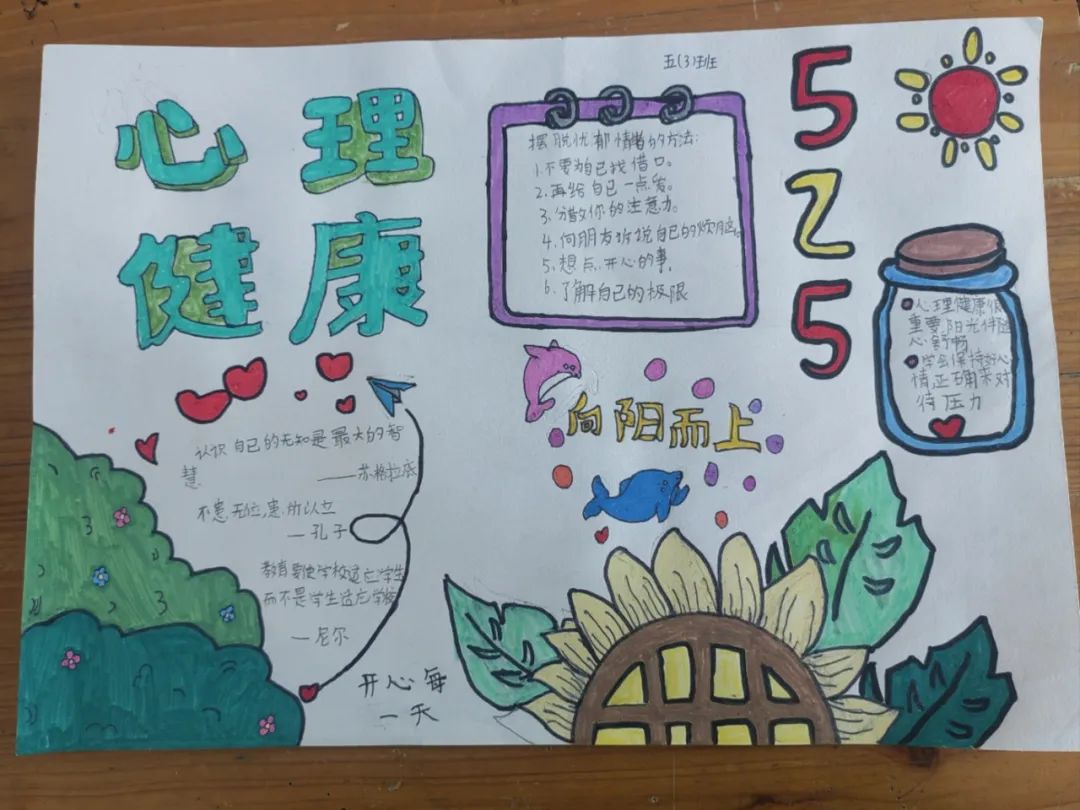 五(3)班
心理
健康
摆脱忧郁情绪的方法:
1.不要为自己找借口。
2.再给自己一点爱。
3.分散你的注意力。
4.向朋友诉说自己的烦恼。
5.想点开心的事.
6.了解自己的极限
5
2
5
心理健康很
重要,阳光伴随
心舒畅
学会保持好心
情正确来对
待压力
向阳而上
认识自己的无知是最大的智
慧
——苏格拉底
不患无位,患所以立
—孔子
教育要使学校适应学生
而不是学生适应学校
—尼尔
开心每
一天